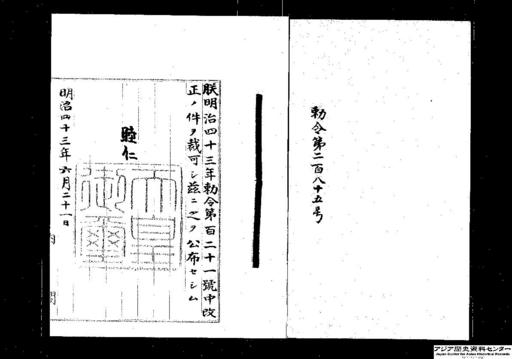 勅令第二百八十五号
朕明治四十三年勅令第百二十一號中改
正ノ件ヲ裁可シ茲ニ之ヲ公布セシム
睦仁
天皇
御璽
明治四十三年六月二十一日
内閣
アジア歴史資料センター
Japan Center for Asian Historical Records